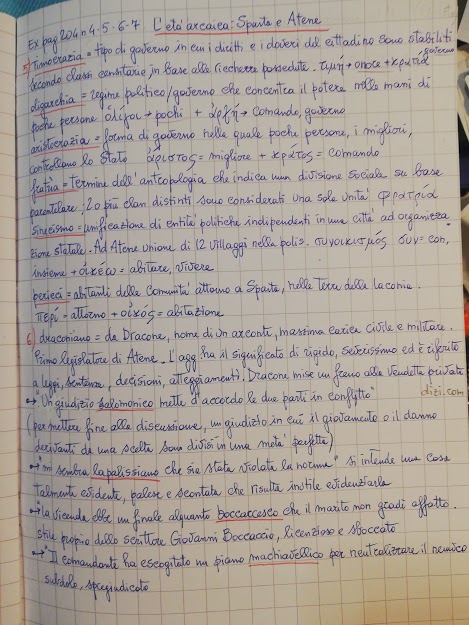 L'età arcaica: Sparta e Atene
Ex pag 204 n 4-5-6-7
5) Timocrazia = tipo di governo in cui i diritti e i doveri del cittadino sono stabiliti
secondo classi censitarie, in base alle ricchezze possedute. τιμή = onore + κρατία governo
oligarchia = regime politico/governo che concentra il potere nelle mani di
poche persone ὀλίγοι → pochi + ἀρχή → comando, governo
aristocrazia = forma di governo nelle quale poche persone, i migliori,
controllano lo stato ἄριστος = migliore + κράτος = comando
fratria = termine dell'antropologia che indica una divisione sociale su base
parentelare; 2 o più clan distinti sono considerati una sola unità φρατρία
sinecismo = unificazione di entità politiche indipendenti in una città ad organizza
zione statale. Ad Atene unione di 12 villaggi nella polis. συνοικισμός συν = con,
insieme + οἰκέω = abitare, vivere
perieci = abitanti delle comunità attorno a Sparta, nelle terre della Laconia.
περί = attorno + οἶκος = abitazione
6) draconiano = da Dracone, nome di un arconte, massima carica civile e militare.
Primo legislatore di Atene. L'agg ha il significato di rigido, severissimo ed è riferito
a leggi, sentenze, decisioni, atteggiamenti. Dracone mise un freno alle vendette private
→ Un giudizio salomonico mette d'accordo le due parti in conflitto dizi.com
(per mettere fine alla discussione, un giudizio in cui il giovamento o il danno
derivanti da una scelta sono divisi in una metà perfetta)
→ "mi sembra lapalissiano che sia stata violata la norma" si intende una cosa
talmente evidente, palese e scontata che risulta inutile evidenziarla
→ la vicenda ebbe un finale alquanto boccaccesco che il marito non gradì affatto.
stile proprio dello scrittore Giovanni Boccaccio, licenzioso e sboccato
→ "Il comandante ha escogitato un piano machiavellico per neutralizzare il nemico
subdolo, spregiudicato